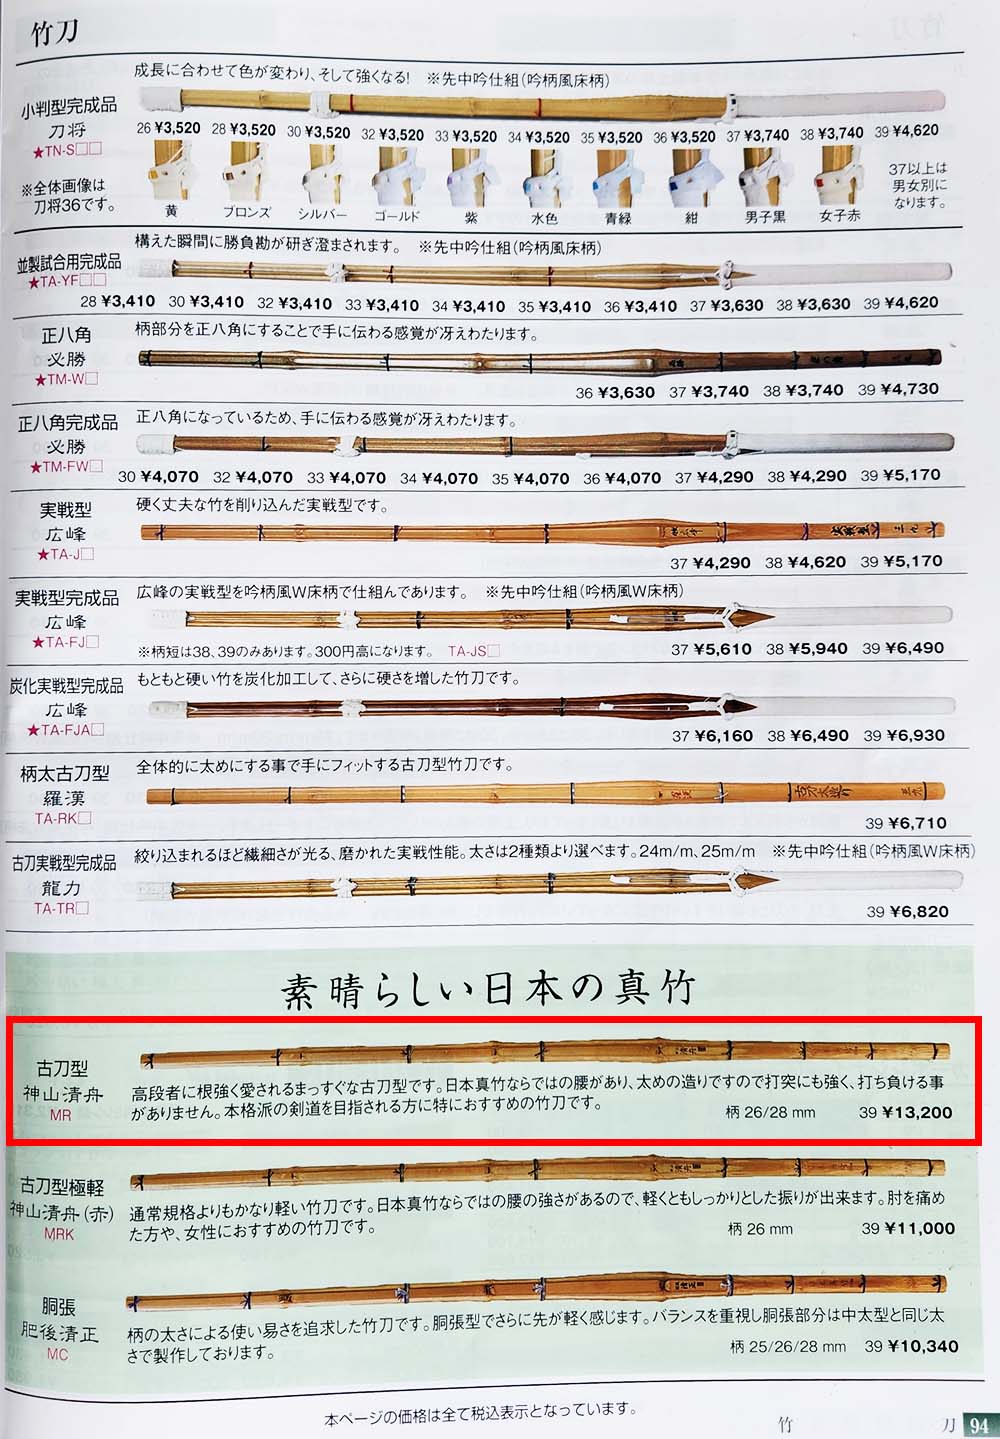 竹刀
小判型完成品
刀将
★TN-S□□
※全体画像は
刀将36です。
成長に合わせて色が変わり、そして強くなる! ※先中吟仕組(吟柄風床柄)
26 ¥3,520 28 ¥3,520 30 ¥3,520 32 ¥3,520 33 ¥3,520 34 ¥3,520 35 ¥3,520 36 ¥3,520 37 ¥3,740 38 ¥3,740 39 ¥4,620
黄 ブロンズ シルバー ゴールド 紫 水色 青緑 紺 男子黒 女子赤
37以上は
男女別に
なります。
並製試合用完成品
★TA-YF□□
構えた瞬間に勝負勘が研ぎ澄まされます。 ※先中吟仕組(吟柄風床柄)
28 ¥3,410 30 ¥3,410 32 ¥3,410 33 ¥3,410 34 ¥3,410 35 ¥3,410 36 ¥3,410 37 ¥3,630 38 ¥3,630 39 ¥4,620
正八角
必勝
★TM-W□
柄部分を正八角にすることで手に伝わる感覚が冴えわたります。
36 ¥3,630 37 ¥3,740 38 ¥3,740 39 ¥4,730
正八角完成品
必勝
★TM-FW□
正八角になっているため、手に伝わる感覚が冴えわたります。
30 ¥4,070 32 ¥4,070 33 ¥4,070 34 ¥4,070 35 ¥4,070 36 ¥4,070 37 ¥4,290 38 ¥4,290 39 ¥5,170
実戦型
広峰
★TA-J□
硬く丈夫な竹を削り込んだ実戦型です。
37 ¥4,290 38 ¥4,620 39 ¥5,170
実戦型完成品
広峰
★TA-FJ□
広峰の実戦型を吟柄風W床柄で仕組んであります。 ※先中吟仕組(吟柄風W床柄)
※柄短は38、39のみあります。300円高になります。 TA-JS□
37 ¥5,610 38 ¥5,940 39 ¥6,490
炭化実戦型完成品
広峰
★TA-FJA□
もともと硬い竹を炭化加工して、さらに硬さを増した竹刀です。
37 ¥6,160 38 ¥6,490 39 ¥6,930
柄太古刀型
羅漢
TA-RK□
全体的に太めにする事で手にフィットする古刀型竹刀です。
39 ¥6,710
古刀実戦型完成品
龍力
TA-TR□
絞り込まれるほど繊細さが光る、磨かれた実戦性能。太さは2種類より選べます。24m/m、25m/m ※先中吟仕組(吟柄風W床柄)
39 ¥6,820
素晴らしい日本の真竹
古刀型
神山清舟
MR
高段者に根強く愛されるまっすぐな古刀型です。日本真竹ならではの腰があり、太めの造りですので打突にも強く、打ち負ける事
がありません。本格派の剣道を目指される方に特におすすめの竹刀です。
柄 26/28 mm 39 ¥13,200
古刀型極軽
神山清舟(赤)
MRK
通常規格よりもかなり軽い竹刀です。日本真竹ならではの腰の強さがあるので、軽くともしっかりとした振りが出来ます。肘を痛め
た方や、女性におすすめの竹刀です。
柄 26 mm 39 ¥11,000
胴張
肥後清正
MC
柄の太さによる使い易さを追求した竹刀です。胴張型でさらに先が軽く感じます。バランスを重視し胴張部分は中太型と同じ太
さで製作しております。
柄 25/26/28 mm 39 ¥10,340
本ページの価格は全て税込表示となっています。
竹 刀 94